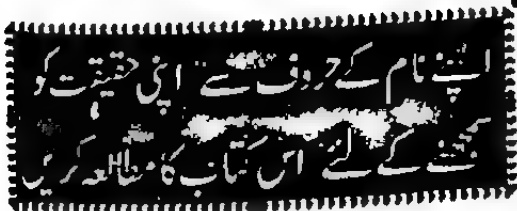 اپنے نام کے حروف سے اپنی حقیقت کو
سمجھنے کے لئے اس کتاب کا مطالعہ کریں